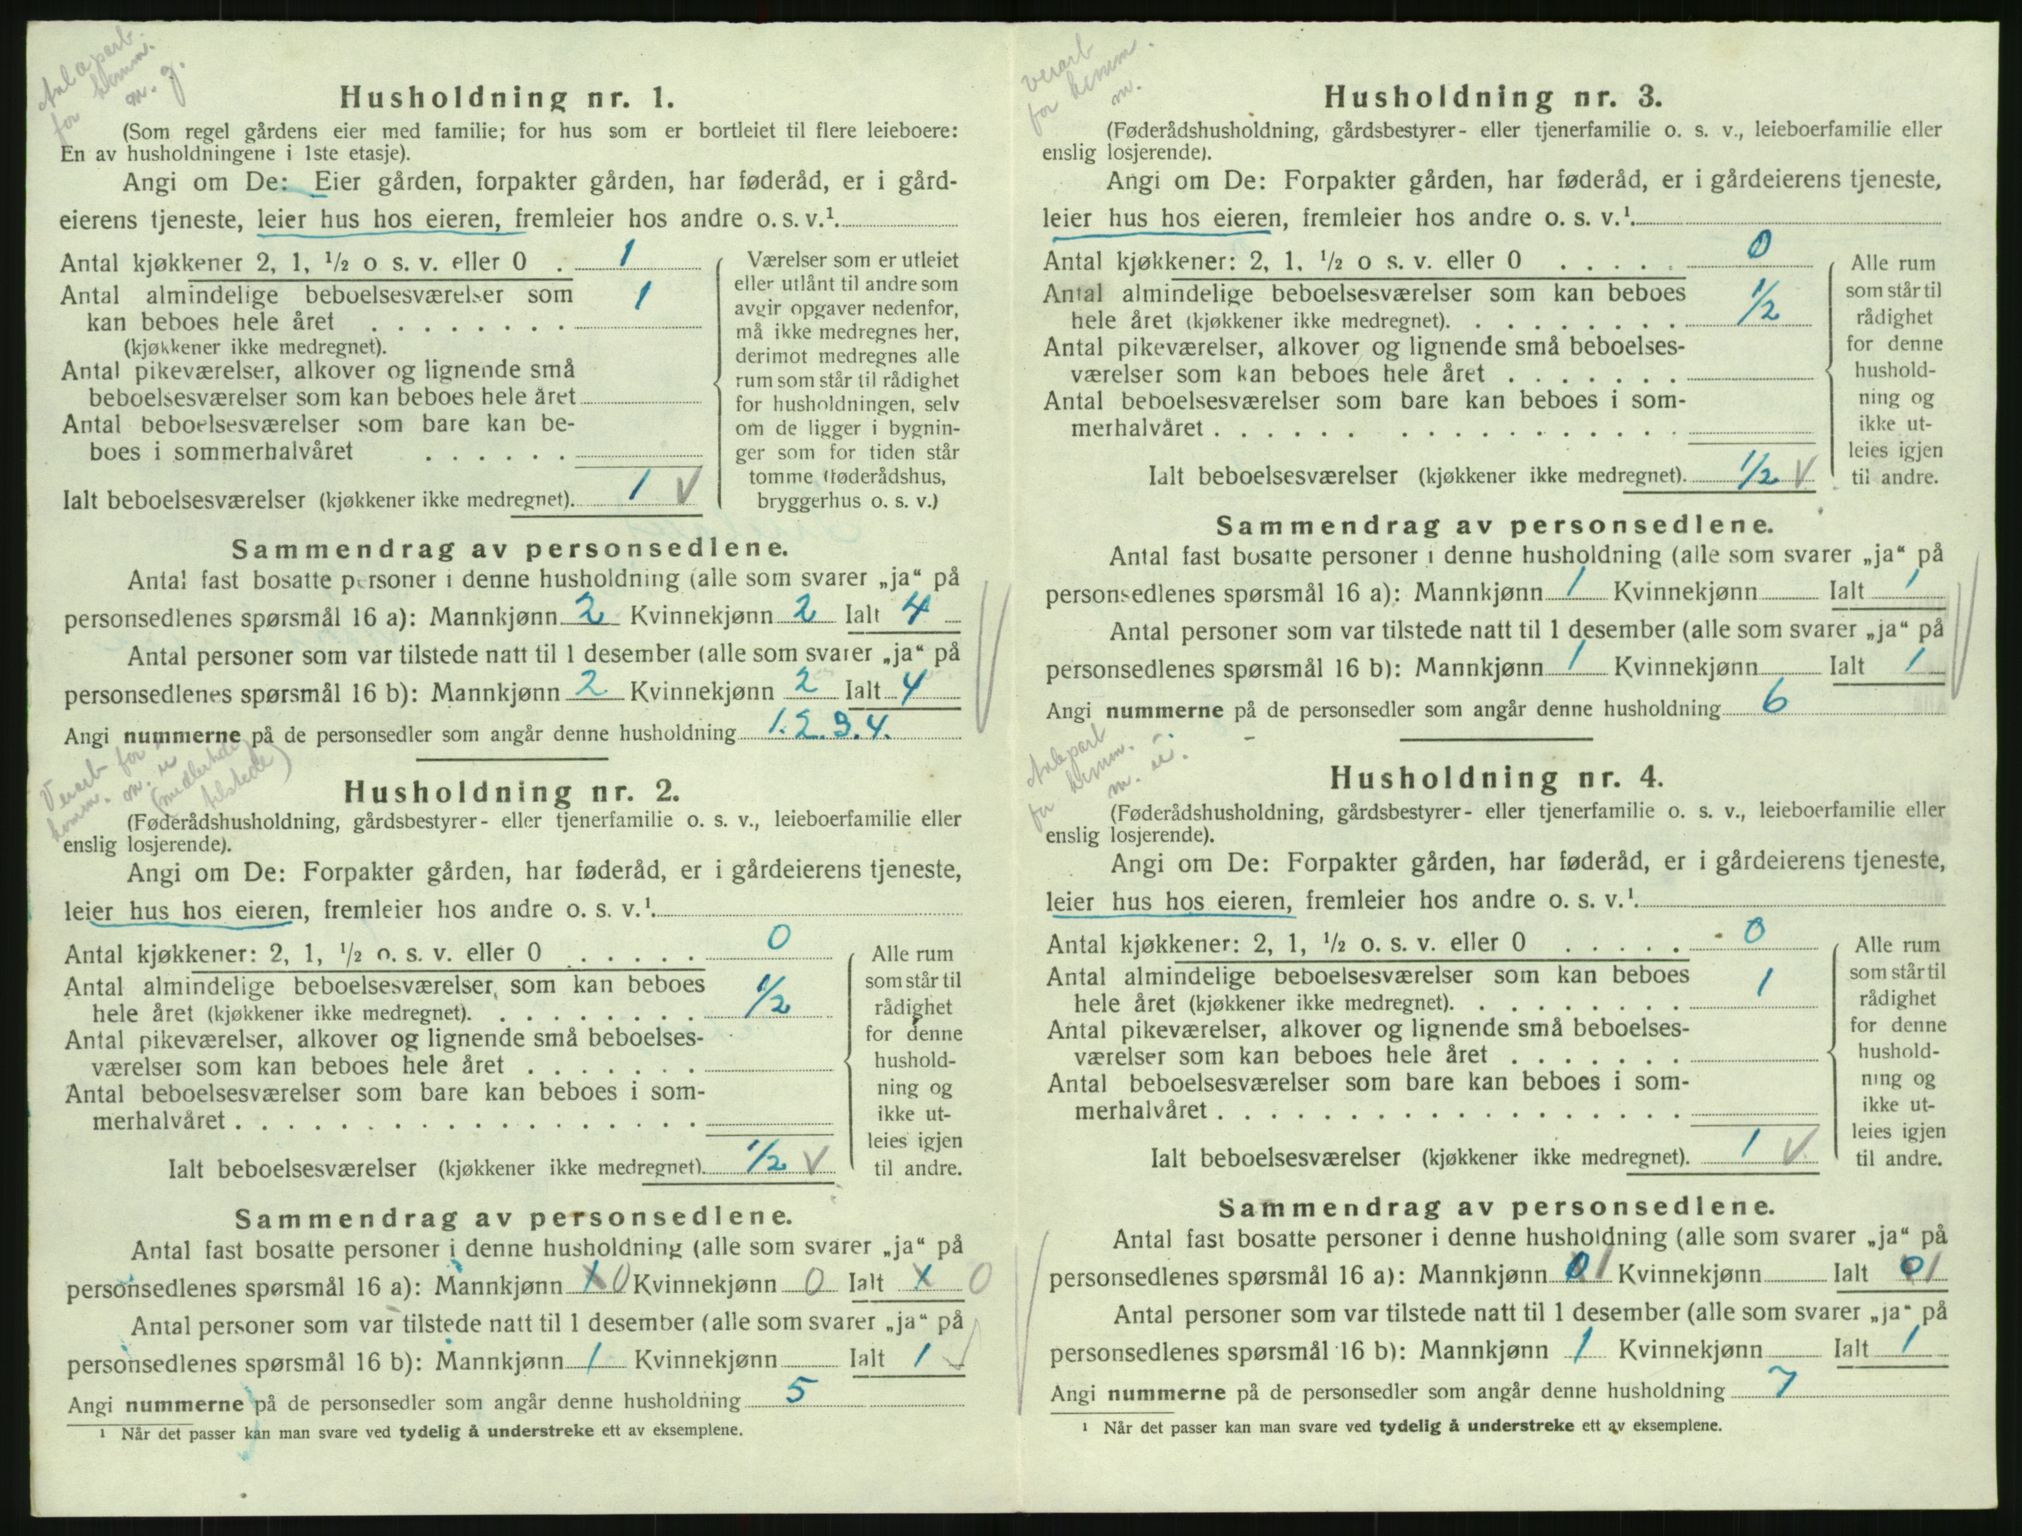 for komm.
m. g.
Husholdning nr. 1.
(Som regel gårdens eier med familie; for hus som er bortleiet til flere leieboere:
En av husholdningene i 1ste etasje).
Angi om De: Eier gården, forpakter gården, har føderåd, er i gård-
eierens tjeneste, leier hus hos eieren, fremleier hos andre o. s. v.¹.
Antal kjøkkener 2, 1, ½ o s. v. eller 0 . 1
Antal almindelige beboelsesværelser som 1
kan beboes hele året . . . . . . . .
(kjøkkener ikke medregnet).
Antal pikeværelser, alkover og lignende små
beboelsesværelser som kan beboes hele året
Antal beboelsesværelser som bare kan be-
boes i sommerhalvåret . . . . . .
Ialt beboelsesværelser (kjøkkener ikke medregnet). 1 V
Værelser som er utleiet
eller utlånt til andre som
avgir opgaver nedenfor,
må ikke medregnes her,
derimot medregnes alle
rum som står til rådighet
for husholdningen, selv
om de ligger i bygnin-
ger som for tiden står
tomme (føderådshus,
bryggerhus o. s. v.)
Sammendrag av personsedlene.
Antal fast bosatte personer i denne husholdning (alle som svarer „ja“ på
personsedlenes spørsmål 16 a): Mannkjønn 2 Kvinnekjønn 2 Ialt 4
Antal personer som var tilstede natt til 1 desember (alle som svarer „ja“ på
personsedlenes spørsmål 16 b): Mannkjønn 2 Kvinnekjønn 2 Ialt 4
Angi nummerne på de personsedler som angår denne husholdning 1. 2. 3. 4.
Verarb for
komm. m. u
(midlertidig
tilstede)
Husholdning nr. 2.
(Føderådshusholdning, gårdsbestyrer- eller tjenerfamilie o. s. v., leieboerfamilie eller
enslig losjerende).
Angi om De: Forpakter gården, har føderåd, er i gårdeierens tjeneste,
leier hus hos eieren, fremleier hos andre o. s. v.¹.
Antal kjøkkener: 2, 1, ½ o. s. v. eller 0 . . . . . 0
Antal almindelige beboelsesværelser, som kan beboes
hele året (kjøkkener ikke medregnet). . . . . . . . . 1/2
Antal pikeværelser, alkover og lignende små beboelses-
værelser som kan beboes hele året . . . . . . .
Antal beboelsesværelser som bare kan beboes i som-
merhalvåret . . . . . . . . . . . . . . . . . .
Ialt beboelsesværelser (kjøkkener ikke medregnet). 1/2 V
Alle rum
som står til
rådighet
for denne
hushold-
ning og
ikke ut-
leies igjen
til andre.
Sammendrag av personsedlene.
Antal fast bosatte personer i denne husholdning (alle som svarer „ja“ på
personsedlenes spørsmål 16 a): Mannkjønn 1 0 Kvinnekjønn 0 Ialt 1 0
Antal personer som var tilstede natt til 1 desember (alle som svarer „ja“ på
personsedlenes spørsmål 16 b): Mannkjønn 1 Kvinnekjønn Ialt 1
Angi nummerne på de personsedler som angår denne husholdning 5
¹ Når det passer kan man svare ved tydelig å understreke ett av eksemplene.
verarb
for komm.
m.
Husholdning nr. 3.
(Føderådshusholdning, gårdsbestyrer- eller tjenerfamilie o. s. v., leieboerfamilie eller
enslig losjerende).
Angi om De: Forpakter gården, har føderåd, er i gårdeierens tjeneste,
leier hus hos eieren, fremleier hos andre o. s. v.¹.
Antal kjøkkener: 2, 1, ½ o s. v. eller 0 . . . . . 0
Antal almindelige beboelsesværelser som kan beboes
hele året (kjøkkener ikke medregnet). . . . . . . . . 1/2
Antal pikeværelser, alkover og lignende små beboelses-
værelser som kan beboes hele året . . . . . . .
Antal beboelsesværelser som bare kan beboes i som-
merhalvåret . . . . . . . . . . . . . . . . .
Ialt beboelsesværelser (kjøkkener ikke medregnet). 1/2 V
Alle rum
som står til
rådighet
for denne
hushold-
ning og
ikke ut-
leies igjen
til andre.
Sammendrag av personsedlene.
Antal fast bosatte personer i denne husholdning (alle som svarer „ja“ på
personsedlenes spørsmål 16 a): Mannkjønn 1 Kvinnekjønn Ialt 1
Antal personer som var tilstede natt til 1 desember (alle som svarer „ja“ på
personsedlenes spørsmål 16 b): Mannkjønn 1 Kvinnekjønn Ialt 1
Angi nummerne på de personsedler som angår denne husholdning 6
for komm.
Husholdning nr. 4.
(Føderådshusholdning, gårdsbestyrer- eller tjenerfamilie o. s. v., leieboerfamilie eller
enslig losjerende).
Angi om De: Forpakter gården, har føderåd, er i gårdeierens tjeneste,
leier hus hos eieren, fremleier hos andre o. s. v.¹.
Antal kjøkkener: 2, 1, ½ o. s. v. eller 0 . . . . . 0
Antal almindelige beboelsesværelser som kan beboes 1
hele året (kjøkkener ikke medregnet). . . . . . . . .
Antal pikeværelser, alkover og lignende små beboelses-
værelser som kan beboes hele året . . . . . . .
Antal beboelsesværelser som bare kan beboes i som-
merhalvåret . . . . . . . . . . . . . . . . . .
Ialt beboelsesværelser (kjøkkener ikke medregnet). 1 V
Alle rum
som står til
rådighet
for denne
hushold-
ning og
ikke ut-
leies igjen
til andre.
Sammendrag av personsedlene.
Antal fast bosatte personer i denne husholdning (alle som svarer „ja“ på
personsedlenes spørsmål 16 a): Mannkjønn 0 1 Kvinnekjønn Ialt 0 1
Antal personer som var tilstede natt til 1 desember (alle som svarer „ja“ på
personsedlenes spørsmål 16 b): Mannkjønn 1 Kvinnekjønn Ialt 1
Angi nummerne på de personsedler som angår denne husholdning 7
¹ Når det passer kan man svare ved tydelig å understreke ett av eksemplene.